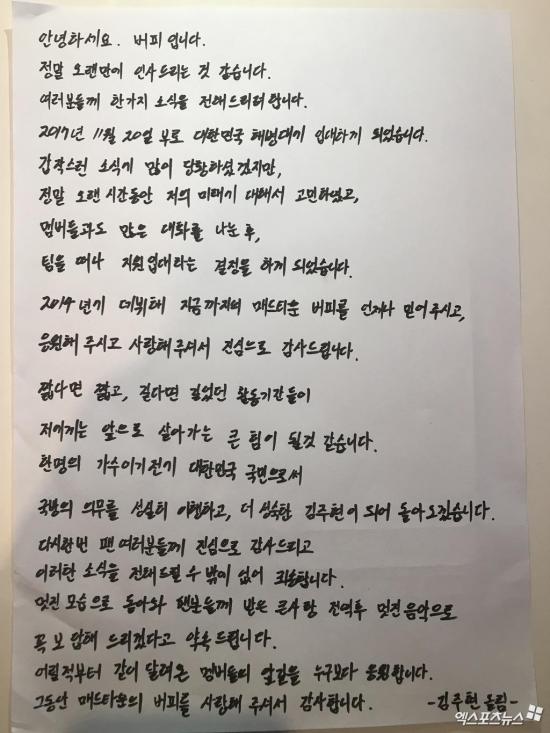 안녕하세요. 버피입니다.
정말 오랜만에 인사드리는 것 같습니다.
여러분들께 한가지 소식을 전해드리려 합니다.
2017년 11월 20일 부로 대한민국 해병대에 입대하게 되었습니다.
갑작스런 소식에 많이 당황하셨겠지만,
정말 오랜 시간동안 저의 미래에 대해서 고민하였고,
멤버들과도 많은 대화를 나눈 후,
팀을 떠나 지원입대라는 결정을 하게 되었습니다.
2014년에 데뷔해 지금까지의 매드타운 버피를 언제나 믿어주시고,
응원해 주시고 사랑해주셔서 진심으로 감사드립니다.
짧다면 짧고, 길다면 길었던 활동기간들이
저에게는 앞으로 살아가는 큰 힘이 될것 같습니다.
한명의 가수이기전에 대한민국 국민으로서
국방의 의무를 성실히 이행하고, 더 성숙한 김주현이 되어 돌아오겠습니다.
다시한번 팬여러분들께 진심으로 감사드리고
이러한 소식을 전해드릴 수 밖에 없어 죄송합니다.
멋진 모습으로 돌아와 팬분들께 받은 큰사랑 전역후 멋진음악으로
꼭 보답해 드리겠다고 약속드립니다.
어릴적부터 같이 달려온 멤버들의 앞길을 누구보다 응원합니다.
그동안 매드타운의 버피를 사랑해 주셔서 감사합니다. -김주현 올림-
엑스포츠뉴스